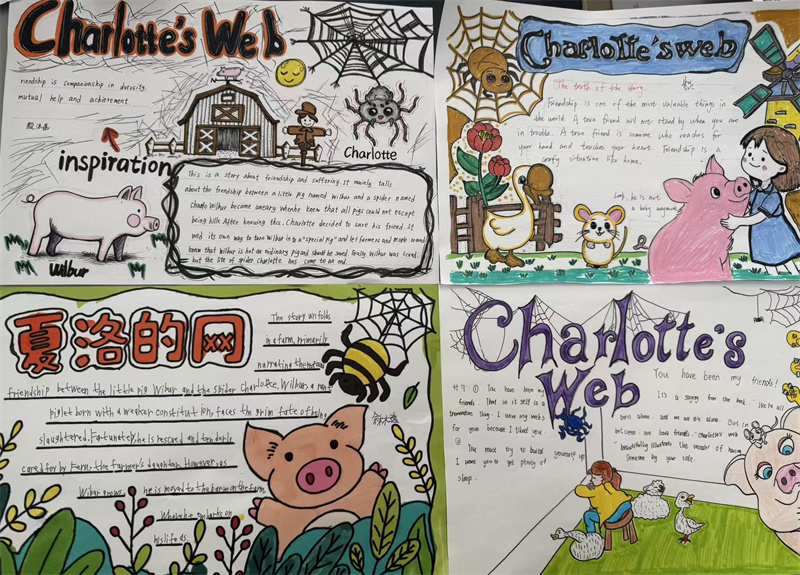 Charlotte's Web
riendship is companionship in
mutual help and achievement.
inspiration
Charlotte
Wilbur
This is a story about friendship and suffering. It mainly talls
about the friendship between a little pig named Wilbur and a spider named
Wilbur became uneary when he knew that all pigs could not escape
being kille. After knowing this, Charlotte decided to save his friend. It
wed its own way to turn Wilbur in to a "special Pig" and
know that Wilbur is not an ordinary pig and should be saved. Finally, Wilbur was saved
but the life of spider Charlotte has come to an end.
Charlotte's web
The truth of the story.
Friendship is one of the most valuable things in
the world. A true friend will not stand by when you are
in trouble. A true friend is someone who reaches for
your hand and touches your heart. Friendship is a
comfy situation like home.
Look, he is not
a baby anymore
夏洛的网
The story unfolds
in a farm, primarily
narrating the
friendship between the little pig Wibur and the spider Charlotte, Wilbur, a
piglet born with a weaker constitution, faces the grim fate of being
slaughtered. Fortunately, he is rescued and tenderly
cared for by Fern, the farmer's daughter. However, as
Wibur grows, he is moved to the barn on the farm,
Where he embarks on
his life as.
Charlotte's
Web
① You have been my
friends. That in it self is a
tremendous thing. I wove my webs
for you because I liked you
②
You must try to build yourself up
I want you to get plenty of
sleep.
You have been my friends!
It's a saying from the book "We're all
born alone and we die alone. But in
between we have friends." Charlotte's web
beautifully illustrates the wonder of having
someone by your side.